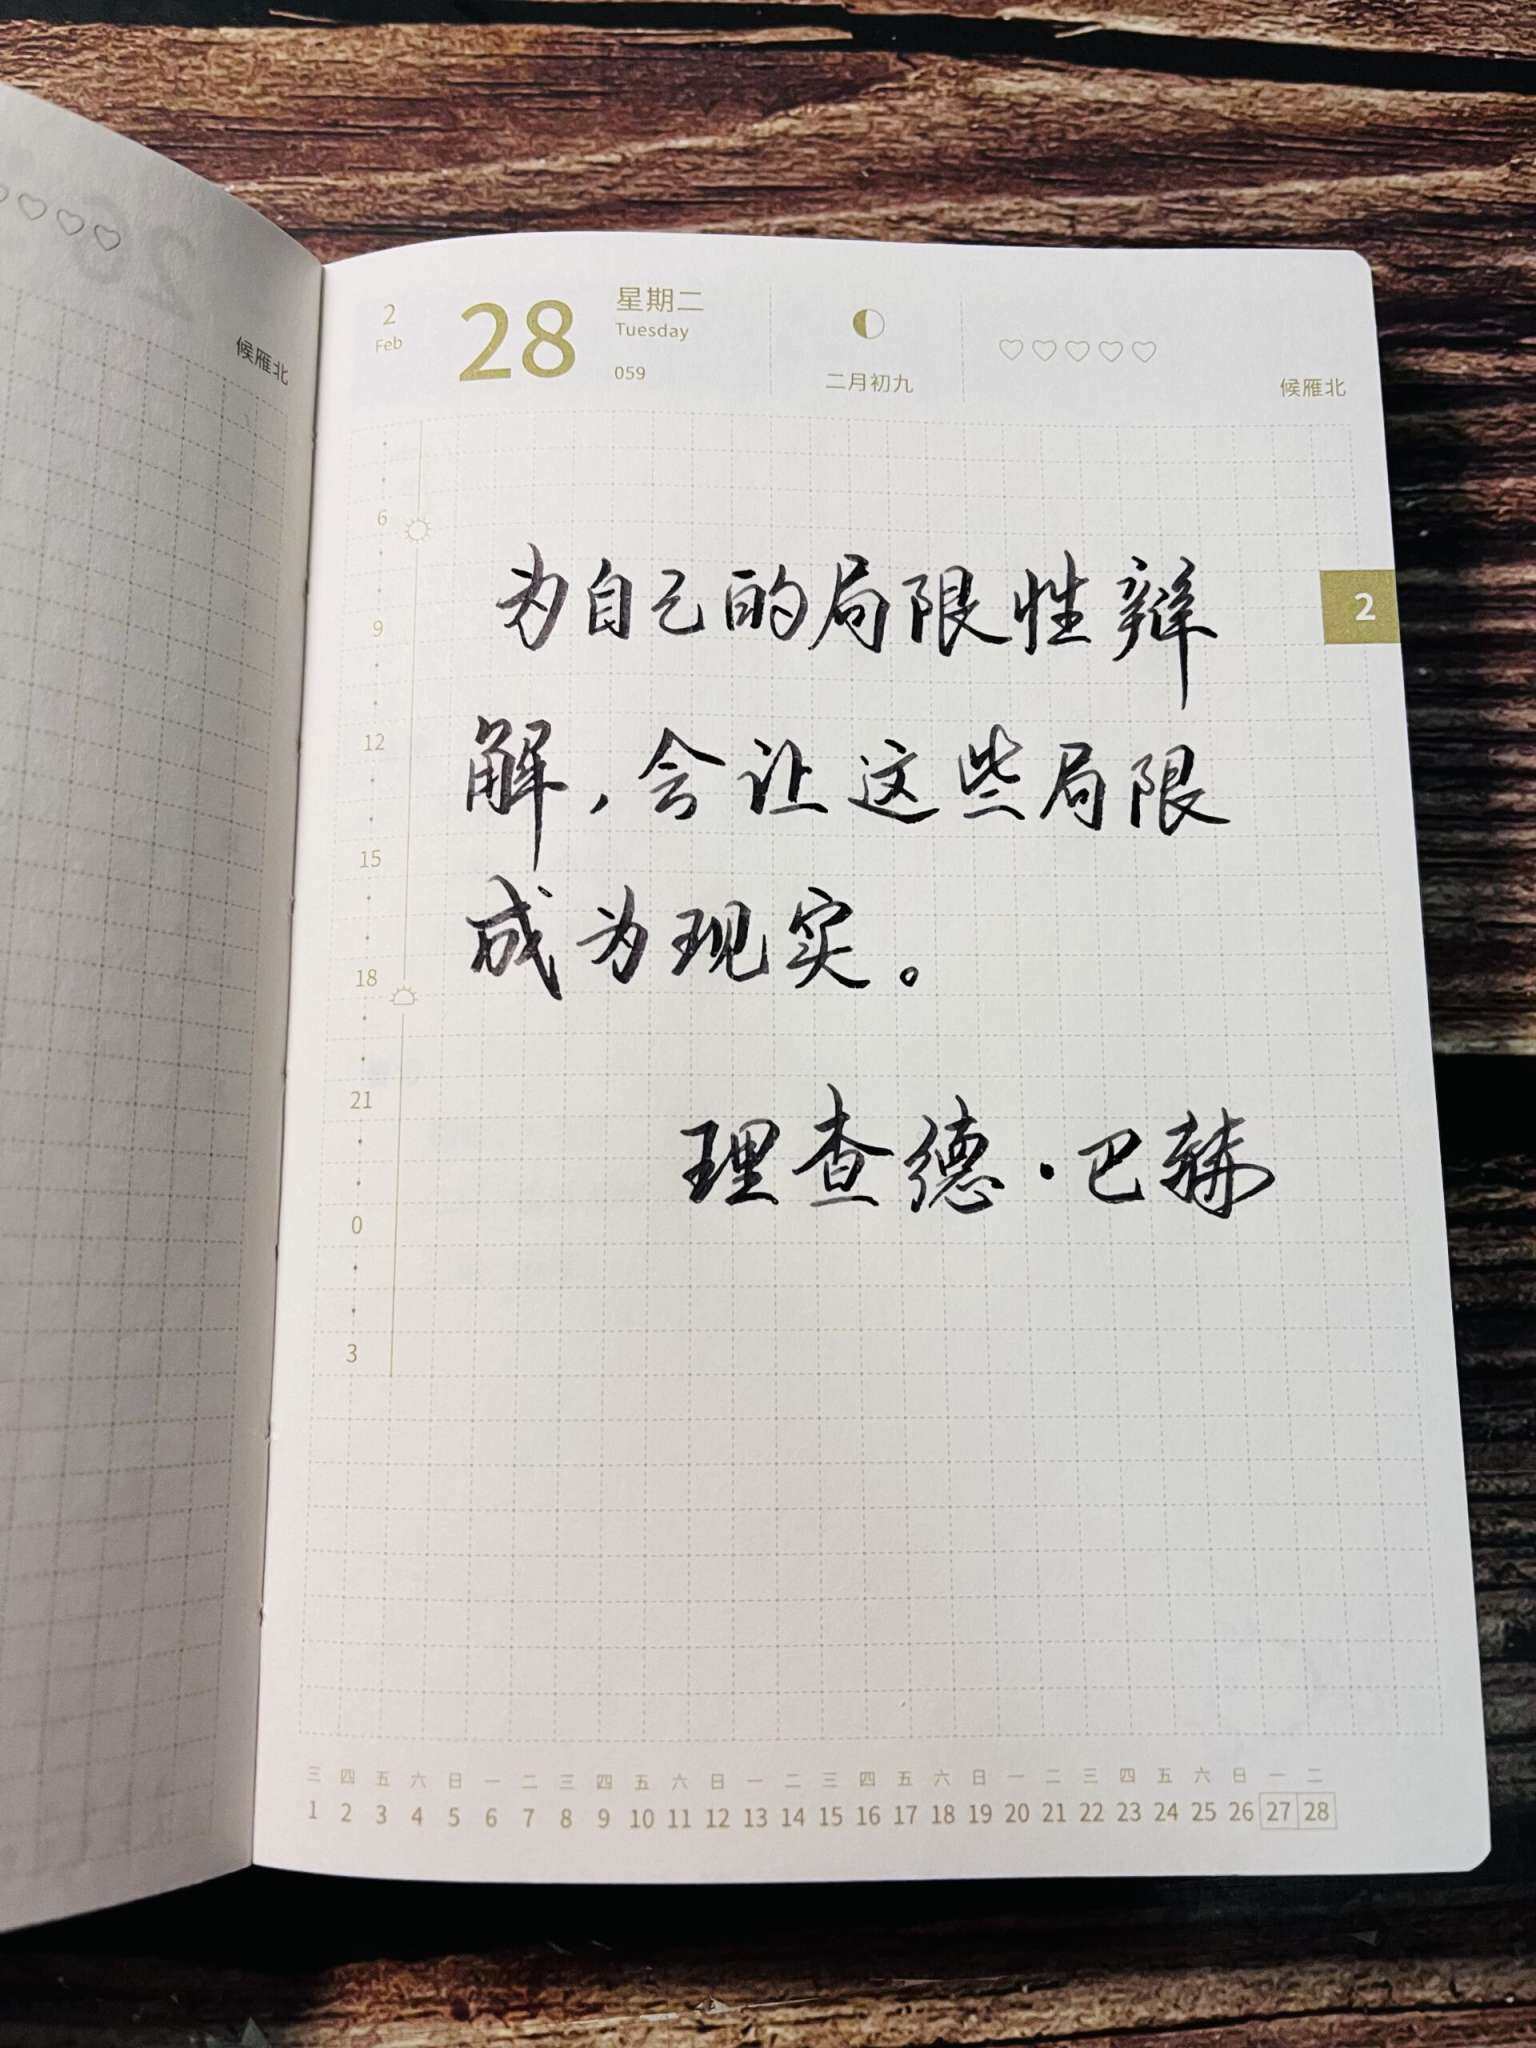 候雁北
2
Feb
28
星期二
Tuesday
059
二月初九
候雁北
2
6
9
12
15
18
21
0
3
为自己的局限性辩
解，会让这些局限
成为现实。
理查德·巴赫
三 四 五 六 日 一 二 三 四 五 六 日 一 二 三 四 五 六 日 一 二 三 四 五 六 日 一 二
1 2 3 4 5 6 7 8 9 10 11 12 13 14 15 16 17 18 19 20 21 22 23 24 25 26 27 28